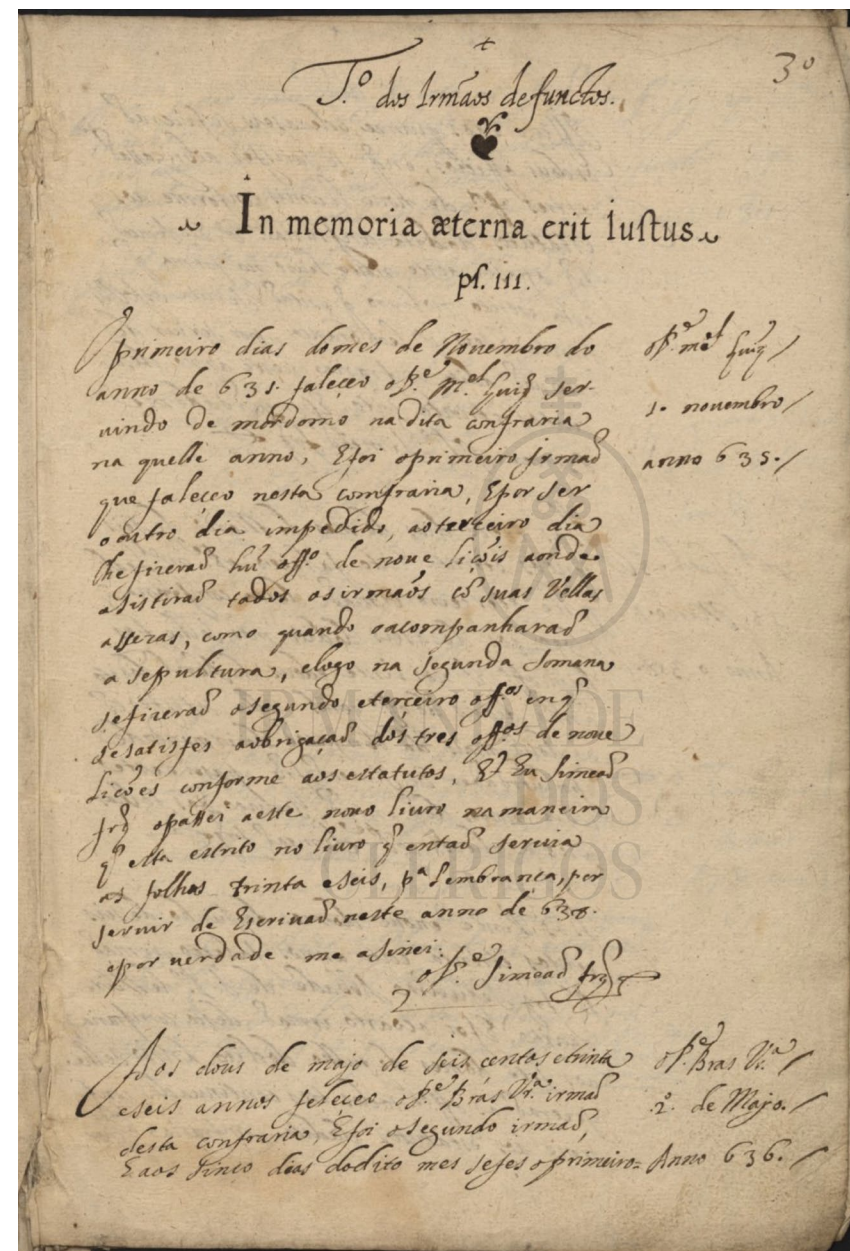 30
T.º dos Irmãos defunctos.
In memoria æterna erit Iustus
ps. 111.
O primeiro dias do mes de Novembro do
anno de 635. faleçeo o P.e M.el ser-
uindo de mordomo na dita confraria
na quelle anno, E foi o primeiro jrmaõ
que faleçeo nesta comfraria, E por ser
o outro dia impedido, ao terceiro dia
lhe fizeraõ hũ off.º de noue liçois aonde
asistiraõ todos os irmaõs cõ suas Vellas
assezas, como quando o acompanharaõ
a sepultura, e logo na segunda somana
se fizeraõ o segundo e terceiro off.os en q̃
se satisfes a obrigaçaõ dos tres off.os de noue
Licões conforme aos estatutos, E Eu Simeaõ
frz̃ o passei a este nouo liuro na maneira
q̃ esta escrito no liuro q̃ entaõ seruia
as folhas trinta e seis, p.a Lembrança, por
seruir de Escriuaõ neste anno de 638.
e por uerdade me asinei.
o P.e Simeaõ frz̃
Aos dous de majo de seis centos e trinta
e seis annos faleçeo o P.e Brás Vr.a irmaõ
desta confraria, E foi o segundo irmaõ,
E aos sinco dias do dito mes se fes o primeiro=
o P.e M.el
1. novembro
anno 635.
o P.e Bras Vr.a
2. de Majo.
Anno 636.
IRMANDADE
DOS
CLÉRIGOS